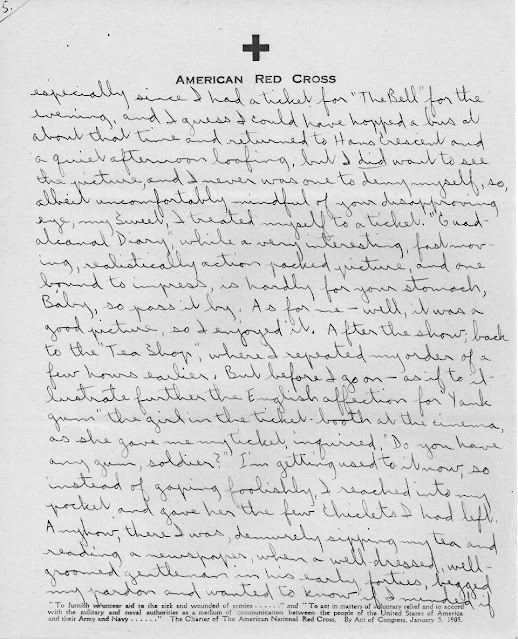 5.
AMERICAN RED CROSS
especially since I had a ticket for "The Bell" for the
evening, and I guess I could have hopped a bus at
about that time and returned to Hans Crescent and
a quiet afternoon loafing, but I did want to see
the picture, and I never was one to deny myself, so,
albeit uncomfortably mindful of your disapproving
eye, my Sweet, I treated myself to a ticket. "Guad-
alcanal Diary", while a very interesting, fast mov-
ing, realistically action packed picture, and one
bound to impress, is hardly for your stomach,
Baby, so pass it by. As for me – well, it was a
good picture, so I enjoyed it. After the show, back
to the "Tea Shop", where I repeated my order of a
few hours earlier. But before I go on – as if to il-
lustrate further the English affection for "Yank
gum" the girl in the ticket-booth at the cinema,
as she gave me my ticket, inquired, "Do you have
any gum, soldier?" I'm getting used to it now, so
instead of gaping foolishly, I reached into my
pocket and gave her the few Chiclets I had left.
Anyhow, there I was, demurely sipping my tea and
reading a newspaper, when a well-dressed, well-
groomed gentleman in his early forties, begged
my pardon and wanted to know if I minded if
"To furnish volunteer aid to the sick and wounded of armies . . . . . ." and "To act in matters of voluntary relief and to accord
with the military and naval authorities as a medium of communication between the people of the United States of America
and their Army and Navy . . . . . ." The Charter of The American National Red Cross. By Act of Congress, January 5, 1905.